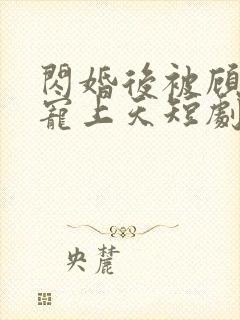 閃婚後被顧
寵上天短劇
央麓